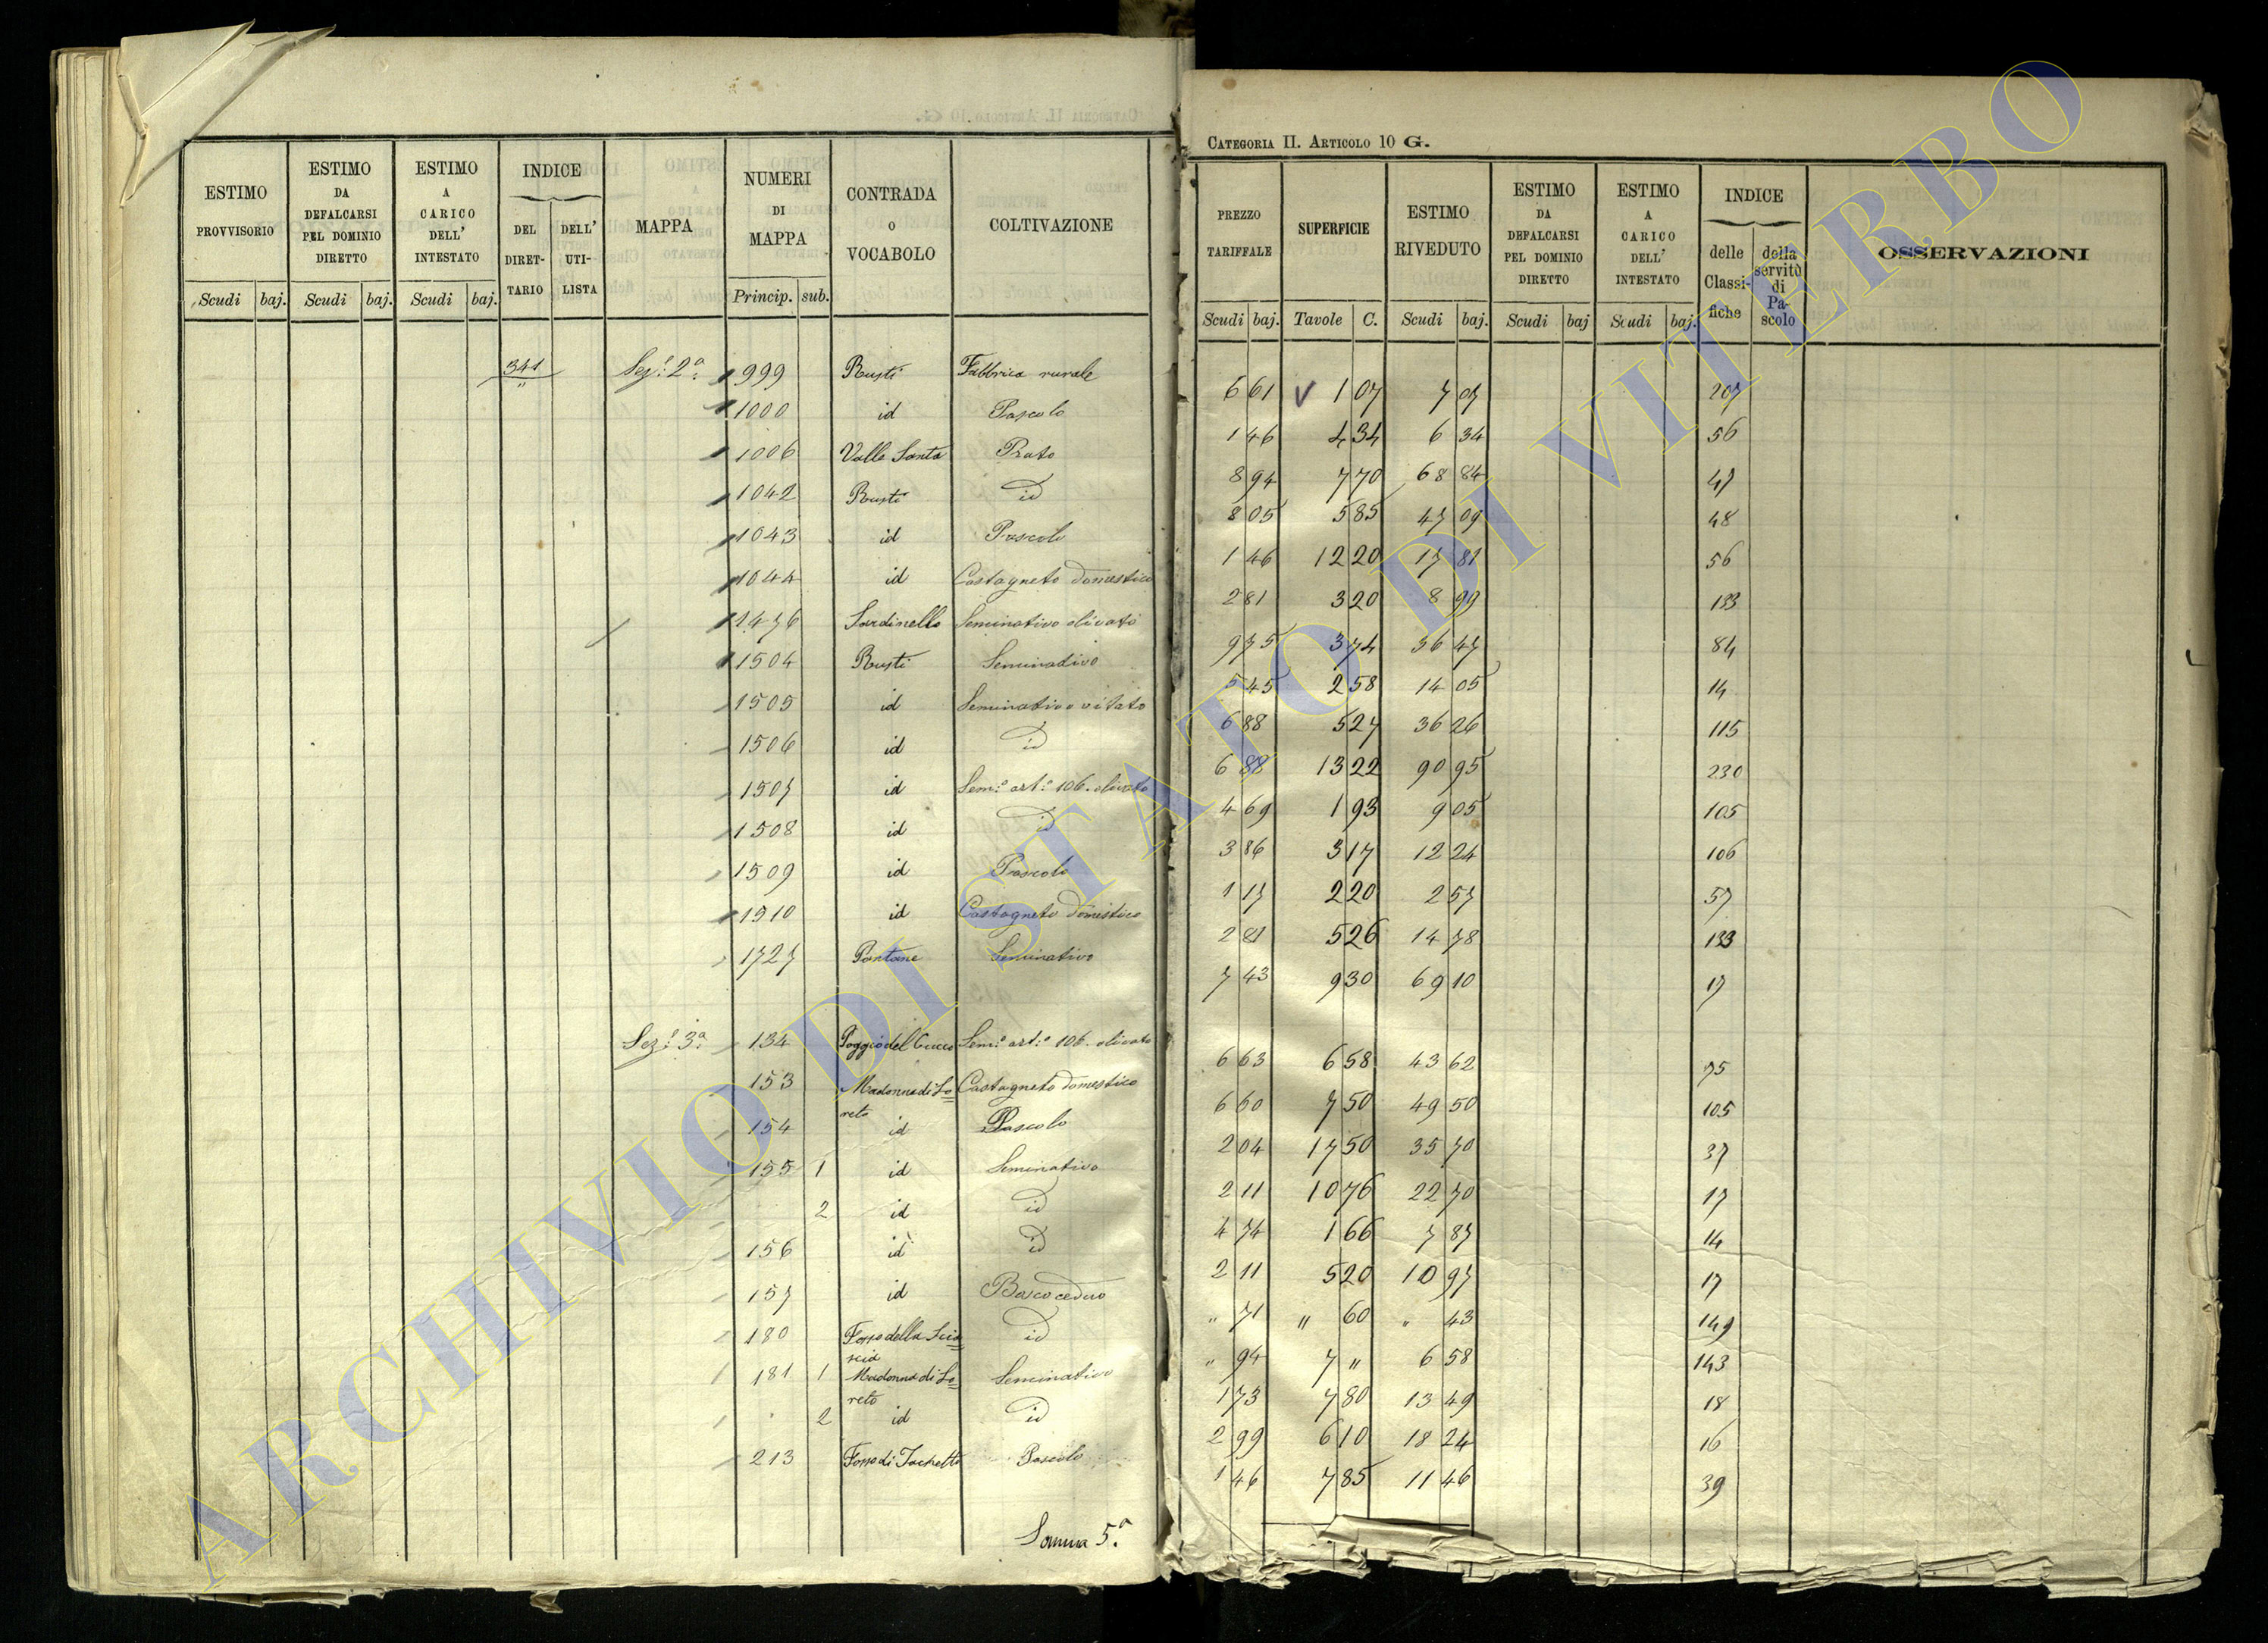 CATEGORIA II. ARTICOLO 10 G.
ESTIMO PROVVISORIO
ESTIMO DA DEFALCARSI PEL DOMINIO DIRETTO
ESTIMO A CARICO DELL' INTESTATO
INDICE
DEL DIRET-TARIO
DELL' UTI-LISTA
MAPPA
NUMERI DI MAPPA
CONTRADA O VOCABOLO
COLTIVAZIONE
PREZZO TARIFFALE
SUPERFICIE
ESTIMO RIVEDUTO
ESTIMO DA DEFALCARSI PEL DOMINIO DIRETTO
ESTIMO A CARICO DELL' INTESTATO
INDICE
delle Classi-fiche
della servitù di Pa-scolo
OSSERVAZIONI
Scudi baj. Scudi baj. Scudi baj. Princip. sub. Scudi baj. Tavole C. Scudi baj. Scudi baj Scudi baj.
341 " Sez.e 2a 999 Rusti Fabbrica rurale 6 61 V 1 07 7 07 207
1000 id Pascolo 1 46 4 34 6 34 56
1006 Valle Santa Prato 8 94 7 70 68 84 47
1042 Rusti id 8 05 5 85 47 09 48
1043 id Pascolo 1 46 12 20 17 81 56
1044 id Castagneto domestico 2 81 3 20 8 99 133
1476 Sardinello Seminativo olivato 9 75 3 74 36 47 84
1504 Rusti Seminativo 5 45 2 58 14 05 14
1505 id Seminativo vitato 6 88 5 27 36 26 115
1506 id id 6 88 13 22 90 95 230
1507 id Sem.o art.o 106. olivato 4 69 1 93 9 05 105
1508 id id 3 86 3 17 12 24 106
1509 id Pascolo 1 17 2 20 2 57 57
1510 id Castagneto domestico 2 81 5 26 14 78 133
1727 Pantane Seminativo 7 43 9 30 69 10 17
Sez.e 3a 134 Poggio del Cucco Sem.o art.o 106. olivato 6 63 6 58 43 62 95
153 Madonna di Lo=reto Castagneto domestico 6 60 7 50 49 50 105
154 id Pascolo 2 04 17 50 35 70 37
155 1 id Seminativo 2 11 10 76 22 70 17
2 id id 4 74 1 66 7 87 14
156 id id 2 11 5 20 10 97 17
157 id Bosco ceduo " 71 " 60 " 43 149
180 Fosso della Scia=scia id " 94 7 " 6 58 143
181 1 Madonna di Lo=reto Seminativo 1 73 7 80 13 49 18
2 id id 2 99 6 10 18 24 16
213 Fosso di Jachetto Pascolo 1 46 7 85 11 46 39
Somma 5.a
ARCHIVIO DI STATO DI VITERBO